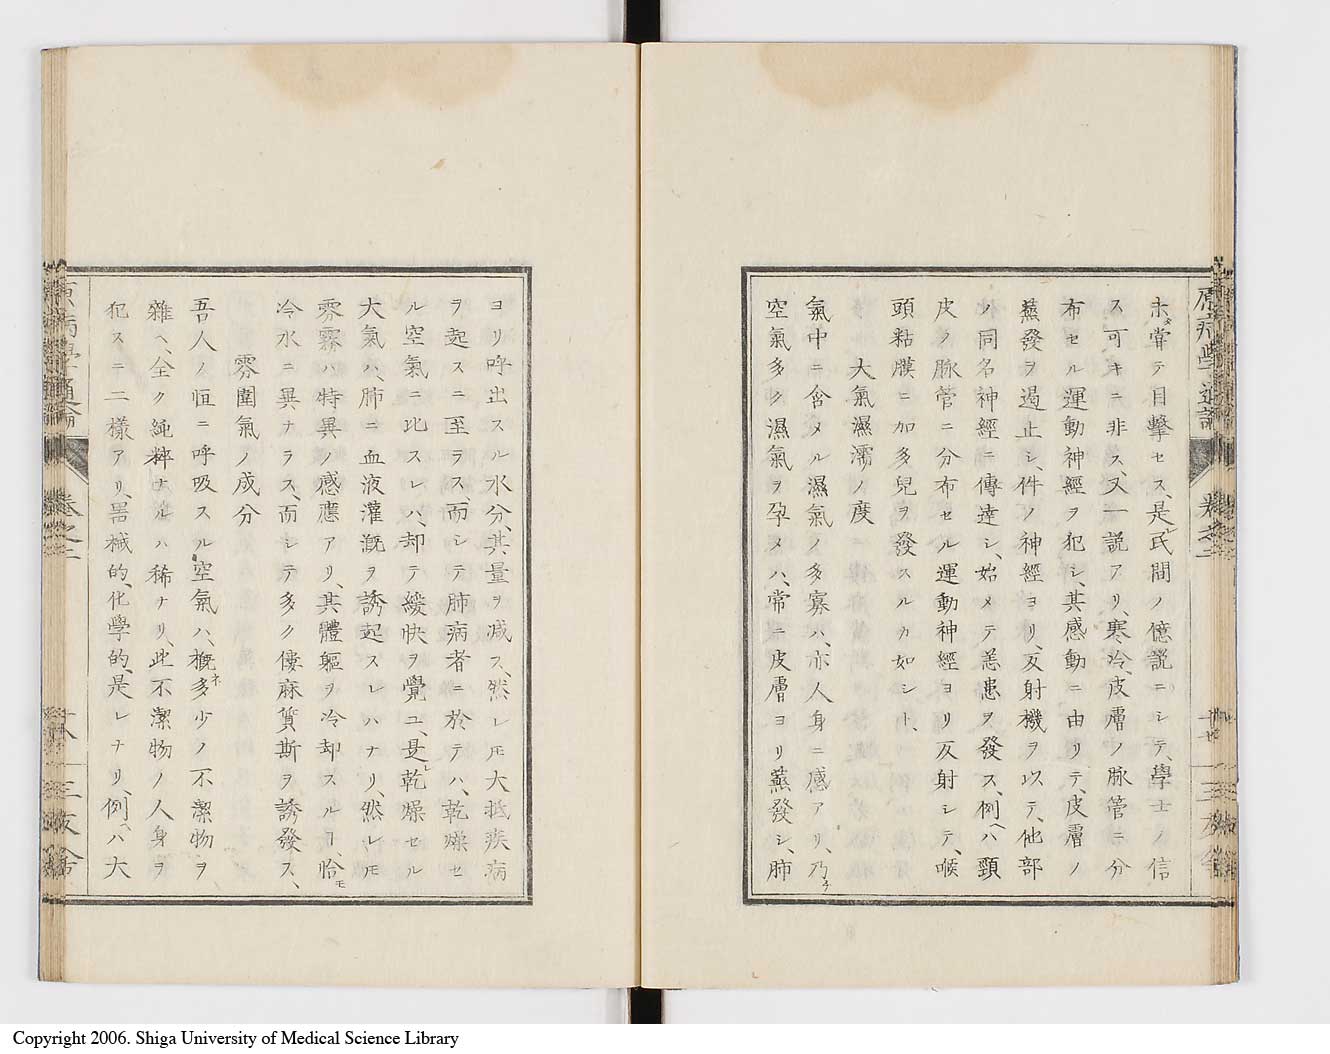 原病學通論
卷之二
三友舍
未タ嘗テ目撃セス、是レ民間ノ億説ニシテ、學士ノ信
ス可キニ非ス、又一説アリ、寒冷、皮膚ノ脈管ニ分
布セル運動神經ヲ犯シ、其感動ニ由リテ、皮膚ノ
蒸發ヲ遏止シ、件ノ神經ヨリ、反射機ヲ以テ、他部
ノ同名神經ニ傳達シ、始メテ恙患ヲ發ス、例ヘハ頸
皮ノ脈管ニ分布セル運動神經ヨリ反射シテ、喉
頭粘膜ニ加多兒ヲ發スルカ如シト、
大氣濕濡ノ度
氣中ニ含メル濕氣ノ多寡ハ、亦人身ニ感アリ、乃チ
空氣多ク濕氣ヲ孕メハ、常ニ皮膚ヨリ蒸發シ、肺
ヨリ呼出スル水分、其量ヲ減ス、然レ𪜈大抵疾病
ヲ起スニ至ラス、而シテ肺病者ニ於テハ、乾燥セ
ル空氣ニ比スレハ、却テ緩快ヲ覺ユ、是レ乾燥セル
大氣ハ、肺ニ血液灌漑ヲ誘起スレハナリ、然レ𪜈
雰霧ハ特異ノ感應アリ、其體軀ヲ冷却スルヿ、恰モ
冷水ニ異ナラス、而シテ多ク僂麻質斯ヲ誘發ス、
雰圍氣ノ成分
吾人ノ恒ニ呼吸スル空氣ハ、概ネ多少ノ不潔物ヲ
雜ヘ、全ク純粹ナルハ稀ナリ、此不潔物ノ人身ヲ
犯スニ二樣アリ、器械的、化學的、是レナリ、例ヘハ大
原病學通論
卷之二
三友舍
Copyright 2006. Shiga University of Medical Science Library